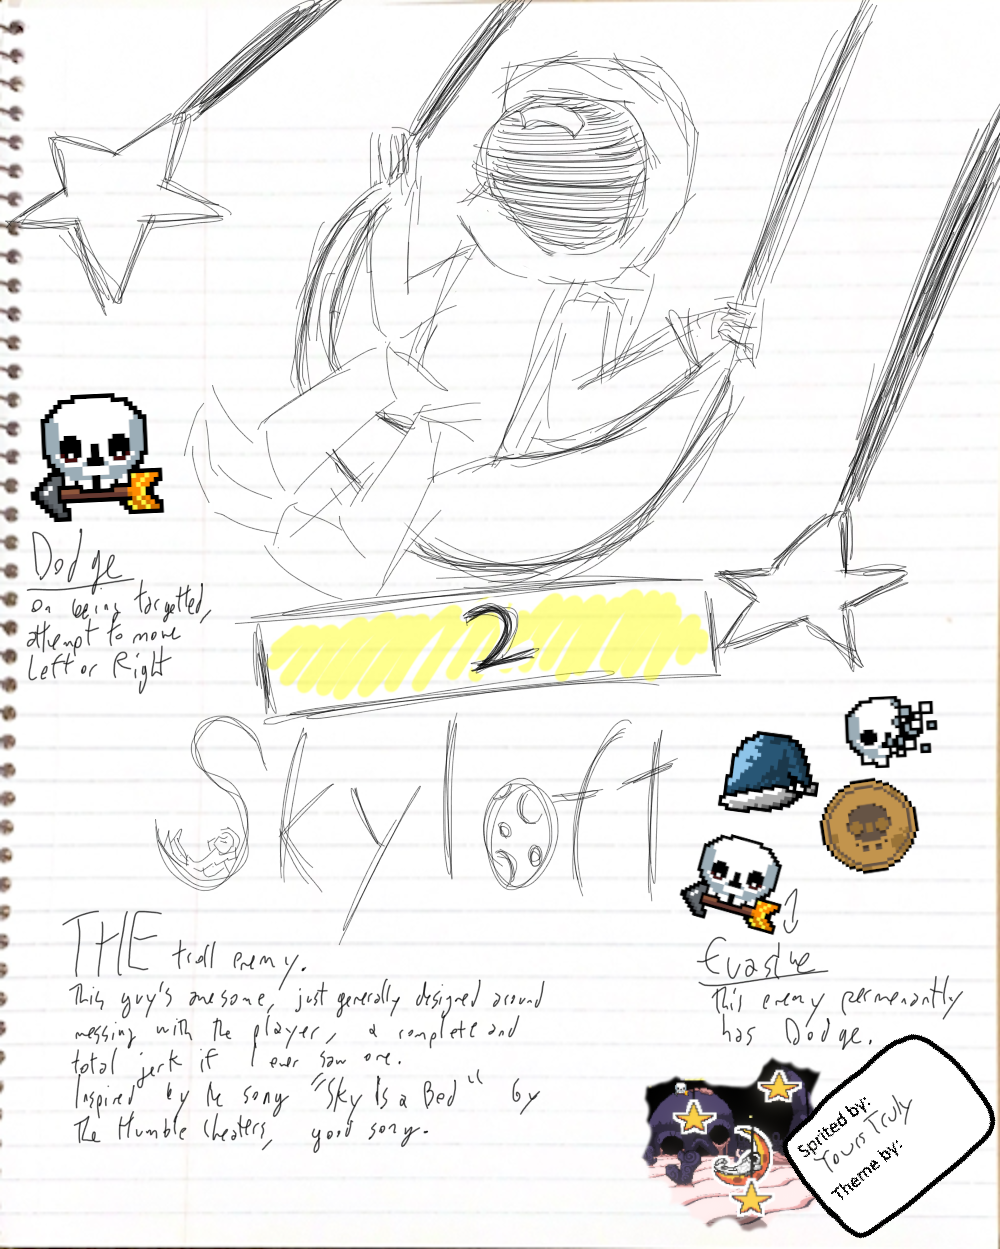 Dodge
on being targetted,
attempt to move
Left or Right
2
Skyloft
THE troll enemy.
This guy's awesome, just generally designed around
messing with the player, a complete and
total jerk if I ever saw one.
Inspired by the song "Sky Is a Bed" by
The Humble Cheaters, good song.
Evasive
This enemy permenantly
has Dodge.
Sprited by:
Yours Truly
Theme by: